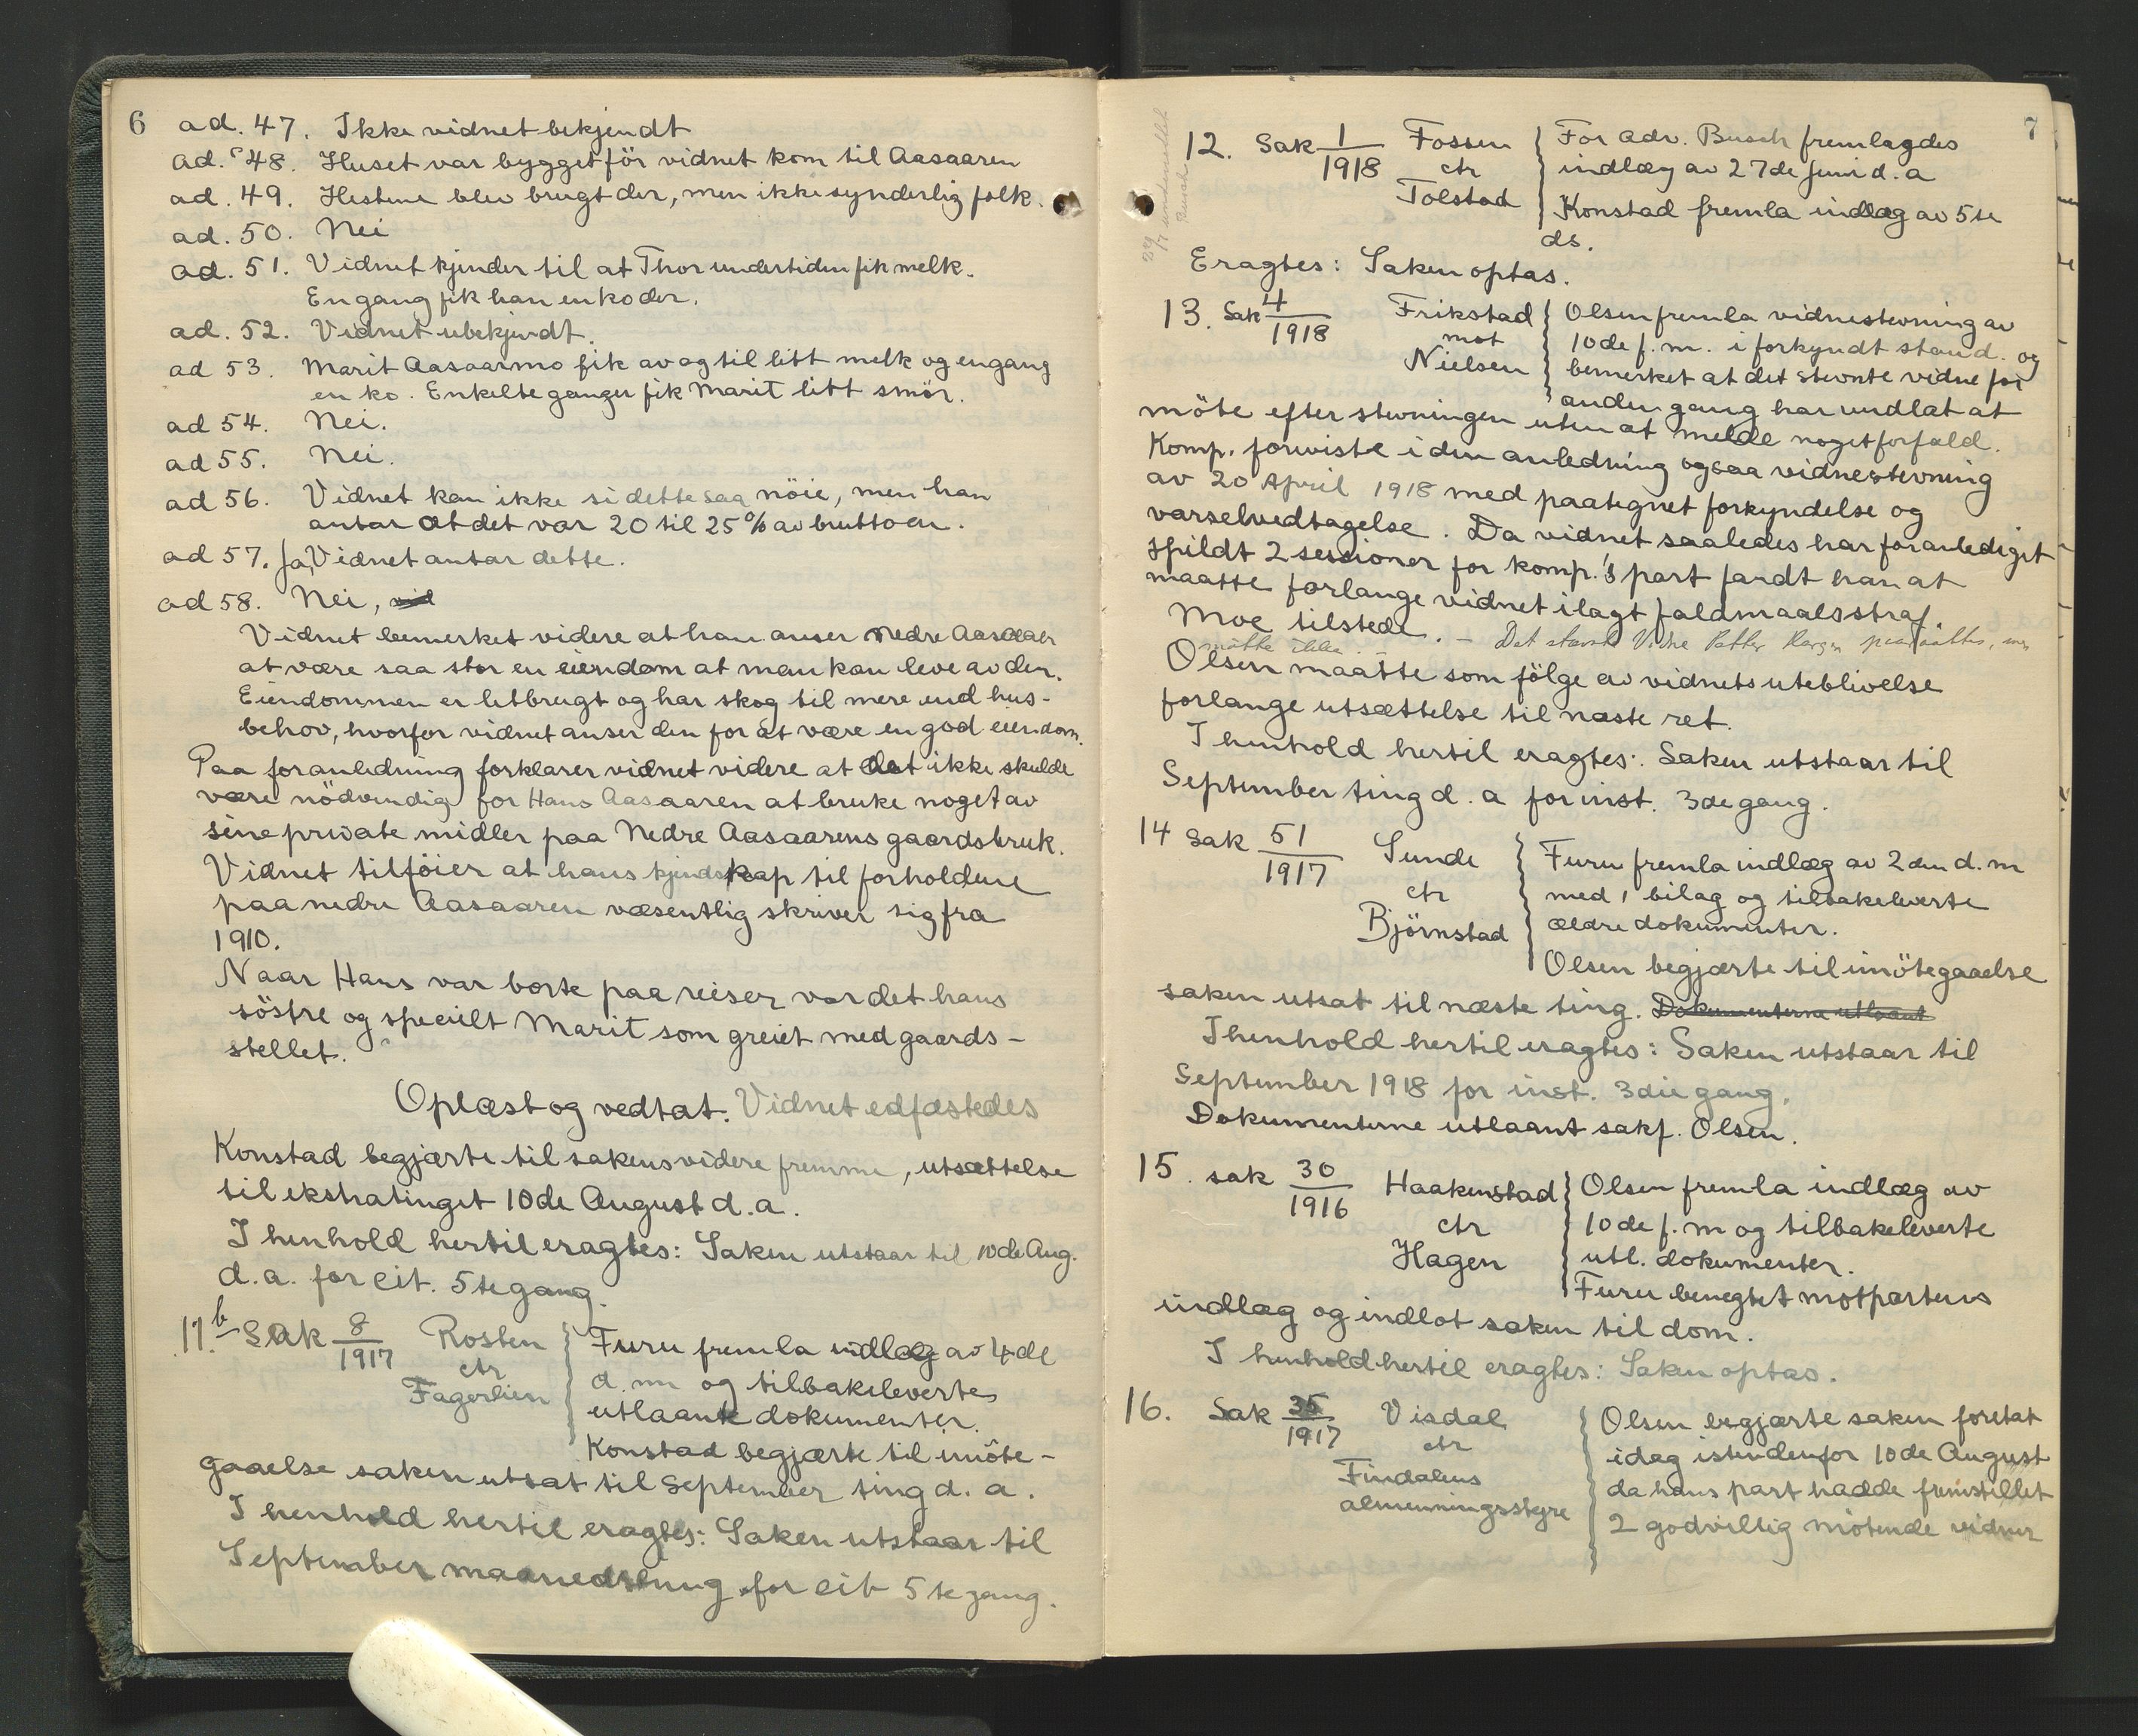 6
ad. 47. Ikke vidnet bekjendt
ad. 48. Huset var bygget för vidnet kom til Aasaaren
ad. 49. Hestene blev brugt der, men ikke synderlig folk.
ad. 50. Nei
ad. 51. Vidnet kjender til at Thor undertiden fik melk.
Engang fik han en ko der.
ad. 52. Vidnet ubekjendt.
ad 53. Marit Aasaarmo fik av og til litt melk og engang
en ko. Enkelte ganger fik Marit litt smör.
ad 54. Nei.
ad 55. Nei.
ad 56. Vidnet kan ikke si dette saa nöie, men han
antar at det var 20 til 25% av bruttoen.
ad 57. Ja, Vidnet antar dette.
ad 58. Nei, vid
Vidnet bemerket videre at han anser nedre Aasaaen
at være saa stor en eiendom at man kan leve av den.
Eiendommen er letbrugt og har skog til mere end hus-
behov, hvorfor vidnet anser den for at være en god eiendom.
Paa foranledning forklarer vidnet videre at det ikke skulde
være nödvendig for Hans Aasaaren at bruke noget av
sine private midler paa Nedre Aasaarens gaardsbruk.
Vidnet tilföier at hans kjendskap til forholdene
paa nedre Aasaaren væsentlig skriver sig fra
1910.
Naar Hans var borte paa reiser var det hans
söstre og specielt Marit som greiet med gaards-
stellet.
Oplæst og vedtat. Vidnet edfæstedes
Konstad begjærte til sakens videre fremme, utsættelse
til ekstratinget 10de August d.a.
I henhold hertil eragtes: Saken utstaar til 10de Aug.
d.a. for cit. 5te gang.
11.b Sak 8/1917 Rosten ctr Fagerlien
Furu fremla indlæg av 4de
d.m og tilbakeleverte
utlaante dokumenter.
Konstad begjærte til imöte-
gaaelse saken utsat til September ting d. a.
I henhold hertil eragtes: Saken utstaar til
September maanedsting for cit 5te gang.
7
12. Sak 1/1918 Fossen ctr Tolstad
For adv. Busch fremlagdes
indlæg av 27de juni d.a
Konstad fremla indlæg av 5te
ds.
Eragtes: Saken optas.
13. Sak 4/1918 Frikstad mot Nielsen
Olsen fremla vidnestevning av
10de f.m. i forkyndt stand. og
bemerket at det stevnte vidne for
anden gang har undlat at
möte efter stevningen uten at melde noget forfald.
Komp. foreviste i den anledning ogsaa vidnestevning
av 20 April 1918 med paategnet forkyndelse og
varselvedtagelse. Da vidnet saaledes har foranlediget
spildt 2 sessioner for komp.'s part fandt han at
maatte forlange vidnet ilagt faldmaalsstraf.
Moe tilstede. - Det stevnte Vidne Petter paaraabtes, men
mötte ikke
Olsen maatte som fölge av vidnets uteblivelse
forlange utsættelse til næste ret.
I henhold hertil eragtes: Saken utstaar til
September ting d.a for inst. 3de gang.
14 Sak 51/1917 Sunde ctr Björnstad
Furu fremla indlæg av 2den d.m
med 1 bilag og tilbakeleverte
ældre dokumenter.
Olsen begjærte til imötegaaelse
saken utsat til næste ting. Dokumenterne utlaant
I henhold hertil eragtes: Saken utstaar til
September 1918 for inst. 3die gang.
Dokumenterne utlaant sakf. Olsen.
15. sak 30/1916 Haakenstad ctr Hagen
Olsen fremla indlæg av
10de f.m og tilbakeleverte
utl. dokumenter.
Furu benegtet motpartens
indlæg og indlot saken til dom.
I henhold hertil eragtes: Saken optas.
16. Sak 35/1917 Visdal ctr Findalens almenningsstyre
Olsen begjærte saken foretat
idag istedenfor 10de August
da hans part hadde fremstillet
2 godvillig mötende vidner